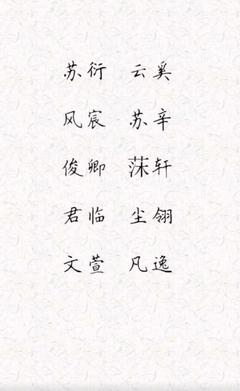 苏衍 云奚
风宸 苏辛
俊卿 莯轩
君临 尘翎
文萱 凡逸